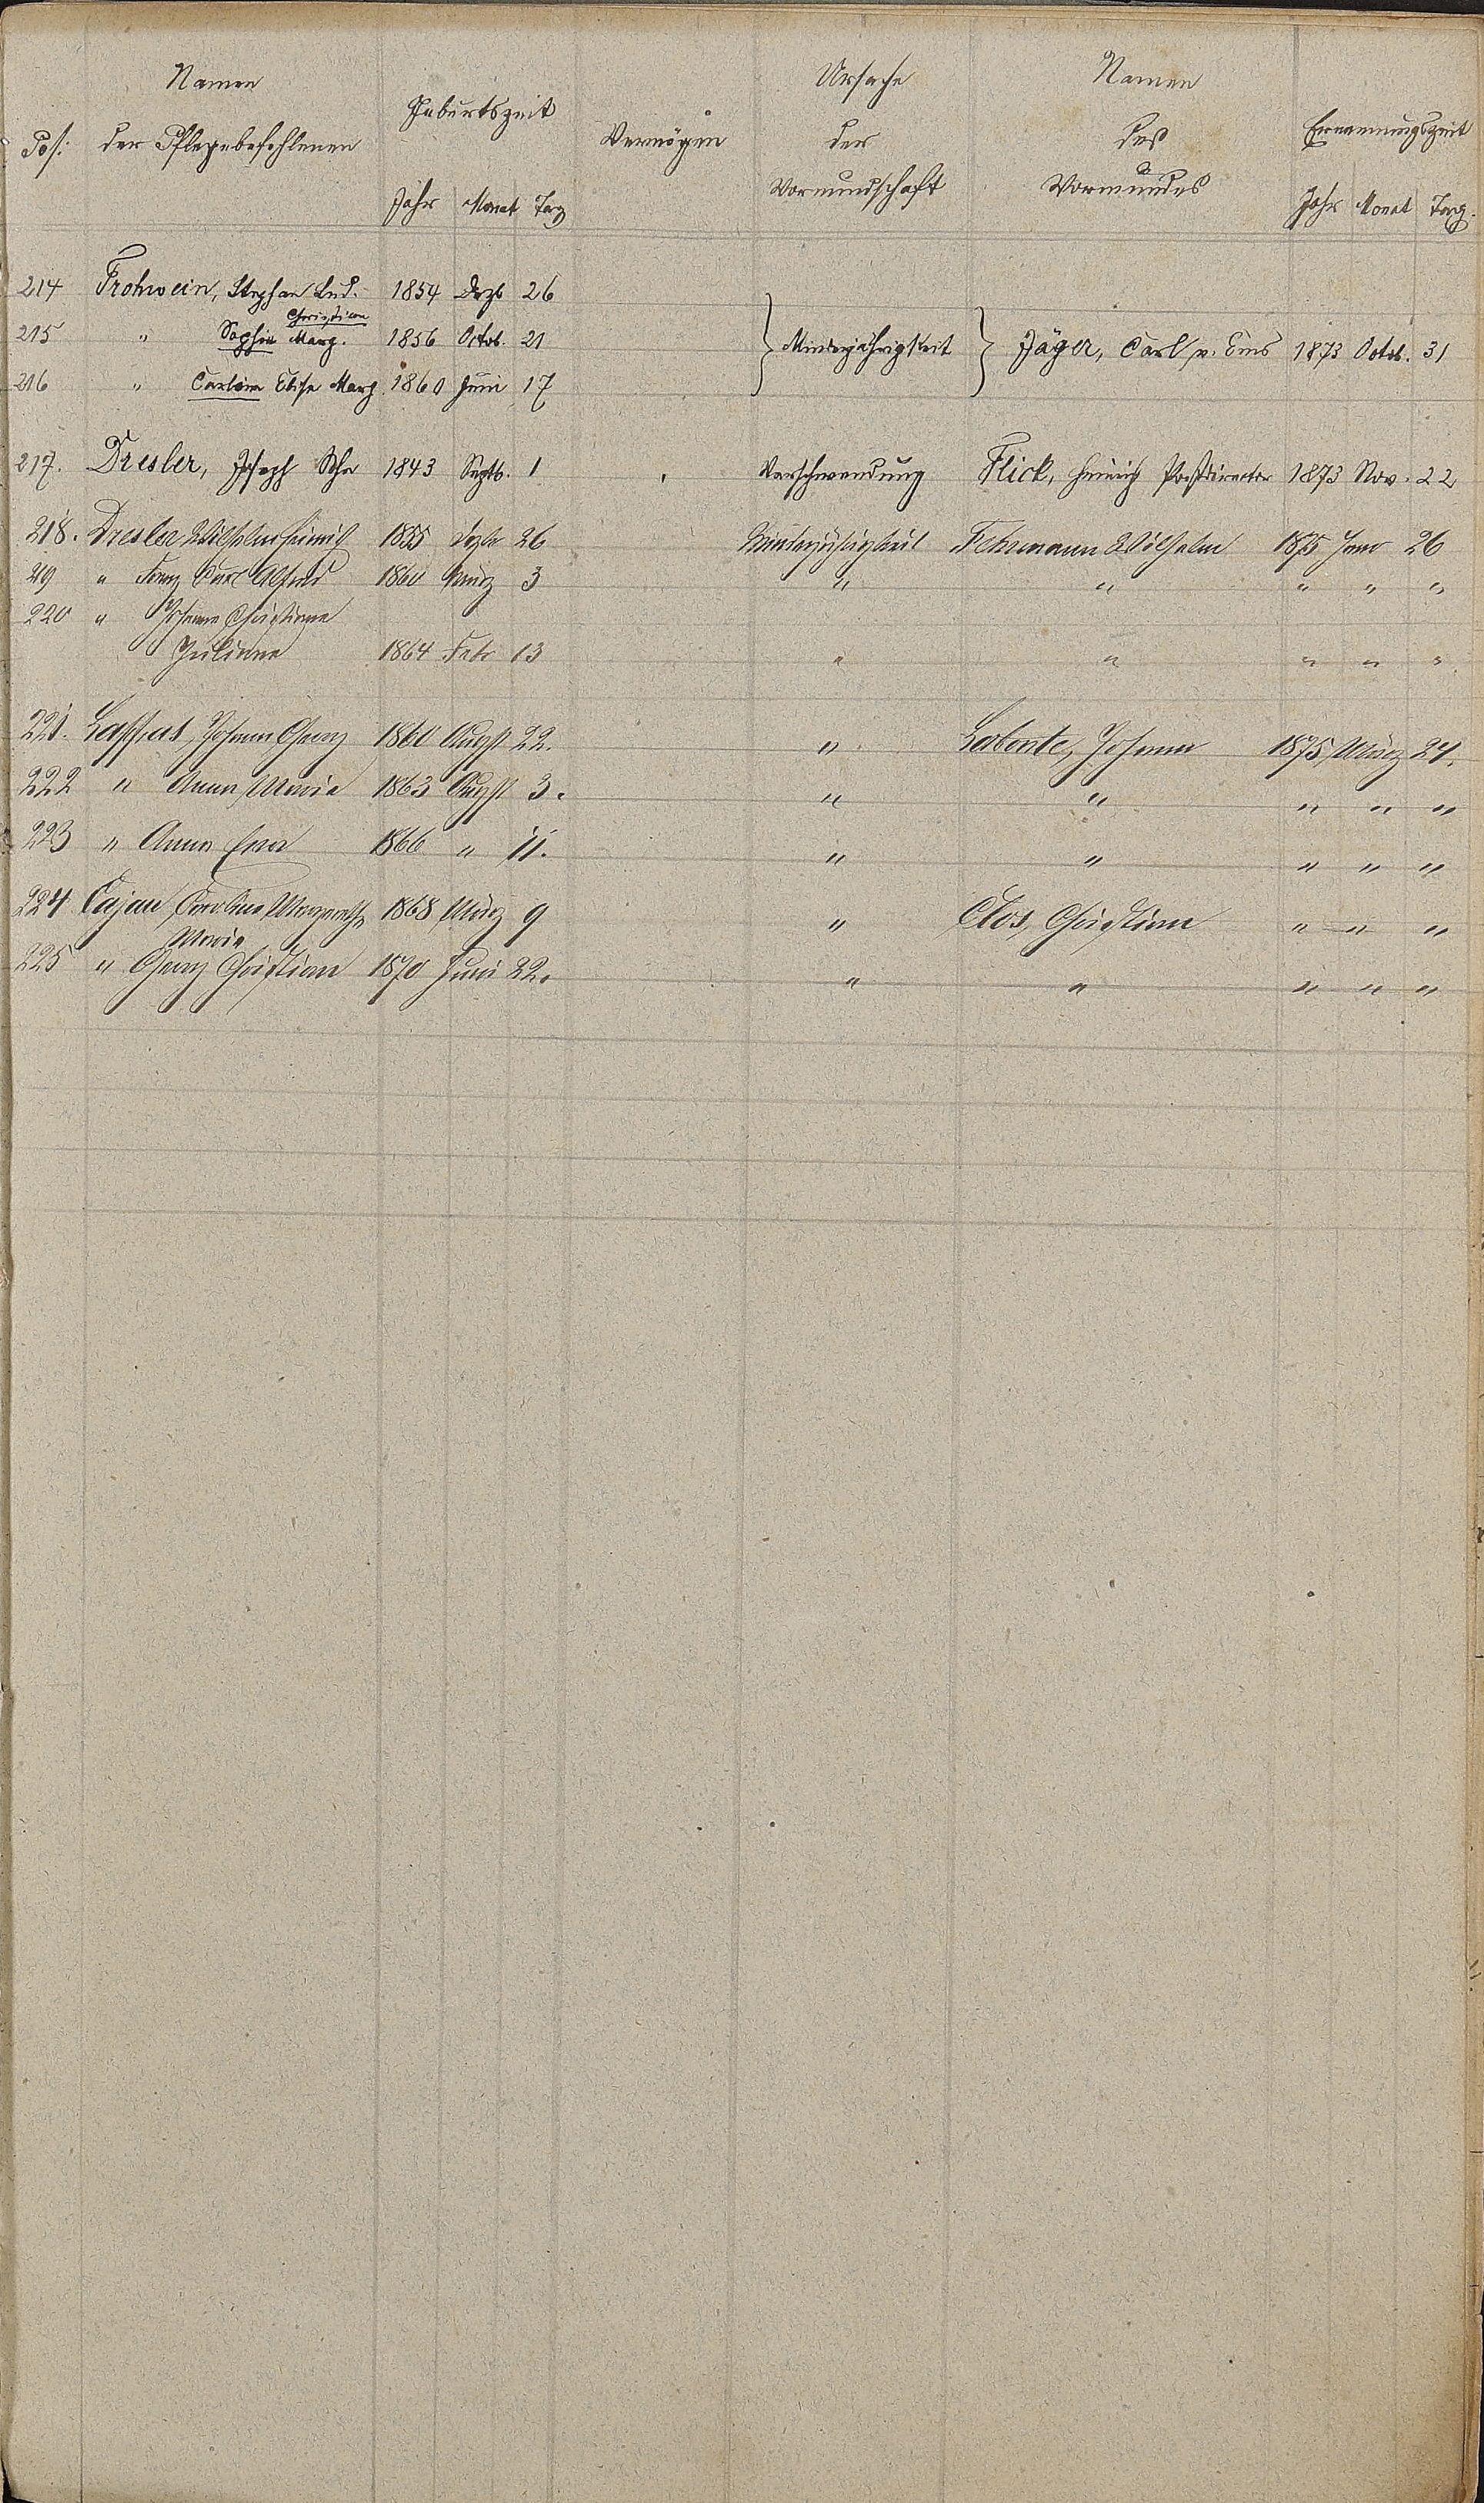 Pos: Namen der Pflegebefohlenen Geburtszeit Vermögen Ursache der Vormundschaft Namen des Vormundes Ernennungszeit
Jahr Monat Tag Jahr Monat Tag.
214 Frohwein, Stephan Lud. 1854 Dezb 26
Christian
215 " Sophie Marg. 1856 Octob. 21 } Minderjährigkeit } Jäger, Carl v. Ems 1873 Octob. 31
216 " Carline Elise Marg. 1860 Juni 17
217. Dresler, Joseph 1843 Septb. 1 Verschwendung Flick, Heinrich Postdirector 1873 Nov. 22
218. Dresler Wilhelm Heinrich 1855 Dezbr 26 Minderjährigkeit Fehrmann Wilhelm 1875 Janr 26
219 " Franz Carl Alfred 1860 März 3 " " " " "
220 " Johanna Christiane
Juliane 1864 Febr 13 " " " " "
221. Johann Georg 1860 August 22. " Labonte, Johann 1875 März 24.
222 " Anna Maria 1863 August 3. " " " " "
223 " Anna Eva 1866 " 11. " " " " "
224 Cajau, Caroline Margareth 1868 März 9 " Clos, Christian " " "
Maria
225 " Georg Christian 1870 Juni 22. " " " " "